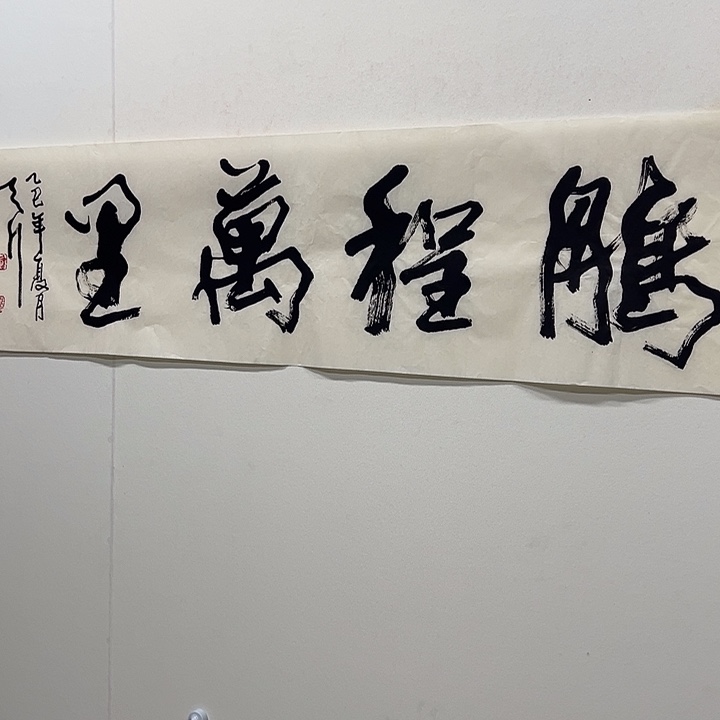 鵬程萬里
乙丑年夏月